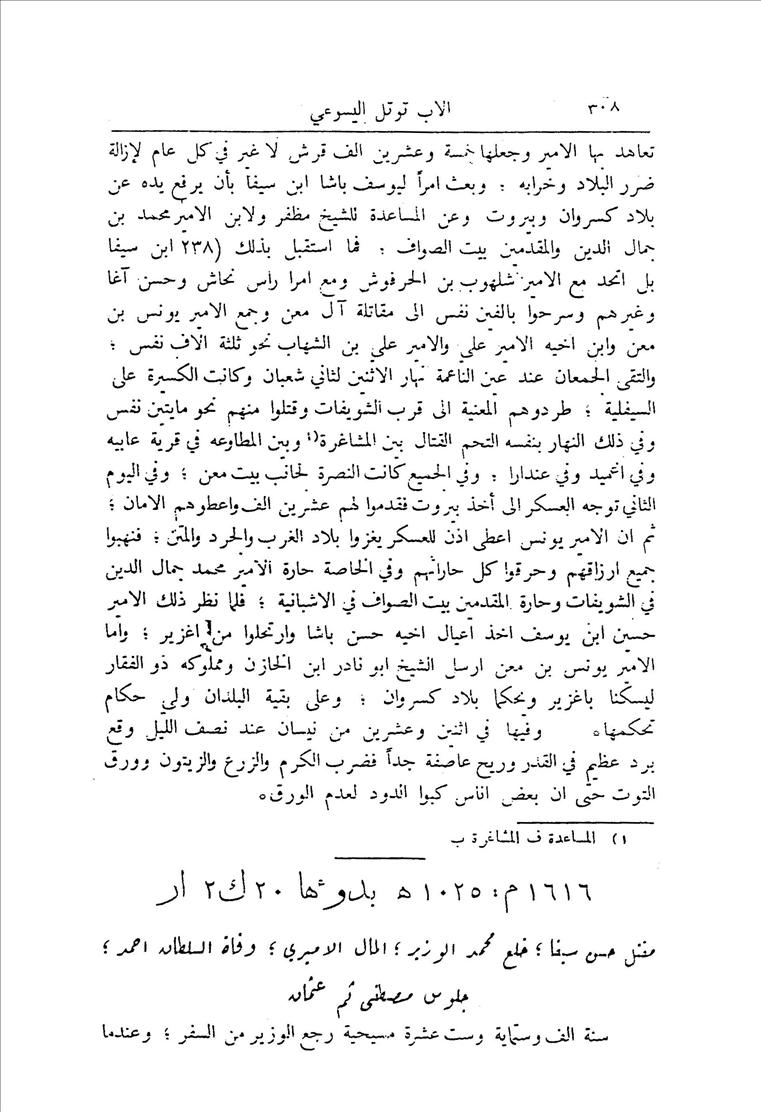 ٣٠٨ الاب توتل اليسوعي
تعاهد بها الامير وجعلها خمسة وعشرين الف قرش لا غير في كل عام لإزالة
ضرر البلاد وخرابه ؛ وبعث امراً ليوسف باشا ابن سيفا بأن يرفع يده عن
بلاد كسروان وبيروت وعن المساعدة للشيخ مظفر ولابن الامير محمد بن
جمال الدين والمقدمين بيت الصواف ؛ فما استقبل بذلك (٢٣٨ ابن سيفا
بل اتحد مع الامير شلهوب بن الحرفوش ومع امرا راس نحاش وحسن آغا
وغيرهم وسرحوا بالفين نفس الى مقاتلة آل معن وجمع الامير يونس بن
معن وابن اخيه الامير علي والامير علي بن الشهاب نحو ثلثة الاف نفس ؛
والتقى الجمعان عند عين الناعمة نهار الاثنين لثاني شعبان وكانت الكسرة على
السيفلية ؛ طردوهم المعنية الى قرب الشويفات وقتلوا منهم نحو مايتين نفس
وفي ذلك النهار بنفسه التحم القتال بين المشاغرة١) وبين المطاوعه في قرية عابيه
وفي اغميد وفي عندارا ؛ وفي الجميع كانت النصرة لجانب بيت معن ؛ وفي اليوم
الثاني توجه العسكر الى أخذ بيروت فقدموا لهم عشرين الف واعطوهم الامان ؛
ثم ان الامير يونس اعطى اذن للعسكر يغزوا بلاد الغرب والجرد والمتن ؛ فنهبوا
جميع ارزاقهم وحرقوا كل حاراتهم وفي الخاصة حارة الامير محمد جمال الدين
في الشويفات وحارة المقدمين بيت الصواف في الاشبانية ؛ فلما نظر ذلك الامير
حسين ابن يوسف اخذ اعيال اخيه حسن باشا وارتحلوا من اغزير ؛ واما
الامير يونس بن معن ارسل الشيخ ابو نادر ابن الخازن ومملوكه ذو الفقار
ليسكنا باغزير ويحكما بلاد كسروان ؛ وعلى بقية البلدان ولي حكام
تحكمها۰ وفيها في اثنين وعشرين من نيسان عند نصف الليل وقع
برد عظيم في القدر وريح عاصفة جداً فضرب الكرم والزرع والزيتون وورق
التوت حتى ان بعض اناس كبوا الدود لعدم الورق۰
١) المساعدة ف المشاغرة ب
١٦١٦ م : ١٠٢٥ ه بدوئها ٢٠ ك٢ ار
مقتل حسن سيفا ؛ خلع محمد الوزير ؛ المال الاميري ؛ وفاة السلطان احمد ؛
جلوس مصطفى ثم عثمان
سنة الف وستماية وست عشرة مسيحية رجع الوزير من السفر ؛ وعندما